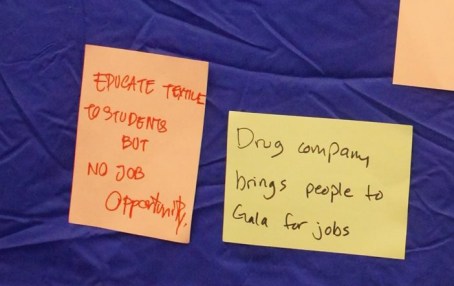 EDUCATE TEXTILE
TO STUDENTS
BUT
NO JOB
Opportunity.
Drug company
brings people to
Gala for jobs